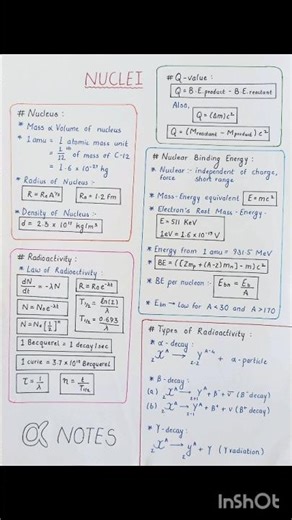 NUCLEI
# Nucleus :-
* Mass α Volume of nucleus
* 1 amu = 1 atomic mass unit
= 1/12 th of mass of C-12
= 1.6 × 10⁻²⁷ kg
* Radius of Nucleus :-
R = R₀A^1/3
R₀ = 1.2 fm
* Density of Nucleus :-
d = 2.3 × 10¹⁷ kg/m³
# Radioactivity :-
* Law of Radioactivity :-
dN/dt = -λN
R = R₀e^-λt
N = N₀e^-λt
T1/2 = ln(2)/λ
N = N₀(1/2)ⁿ
T1/2 = 0.693/λ
1 Becquerel = 1 decay/sec
1 curie = 3.7 × 10¹⁰ Becquerel
τ = 1/λ
n = t/T1/2
α NOTES
# Q-value :
Q = B.E.product - B.E.reactant
Also,
Q = (Δm)c²
Q = (Mreactant - Mproduct)c²
# Nuclear Binding Energy :-
* Nuclear :- independent of charge,
force short range
* Mass-Energy equivalent E = mc²
* Electron's Rest Mass-Energy :-
E = 511 KeV
1eV = 1.6 × 10⁻¹⁹ V
* Energy from 1 amu = 931.5 MeV
* BE = ((Zmp + (A-Z)mn) - m)c²
* BE per nucleon :- Ebn = Eb/A
* Ebn → Low for A<30 and A>170
# Types of Radioactivity :-
* α-decay :-
zXᴬ → z-2Yᴬ⁻⁴ + α-particle
* β-decay :-
(a) zXᴬ → z+1Yᴬ + β⁻ + ν̄ (β⁻ decay)
(b) zXᴬ → z-1Yᴬ + β⁺ + ν (β⁺ decay)
* γ-decay :-
zXᴬ → zYᴬ + γ (γ radiation)
InShOt